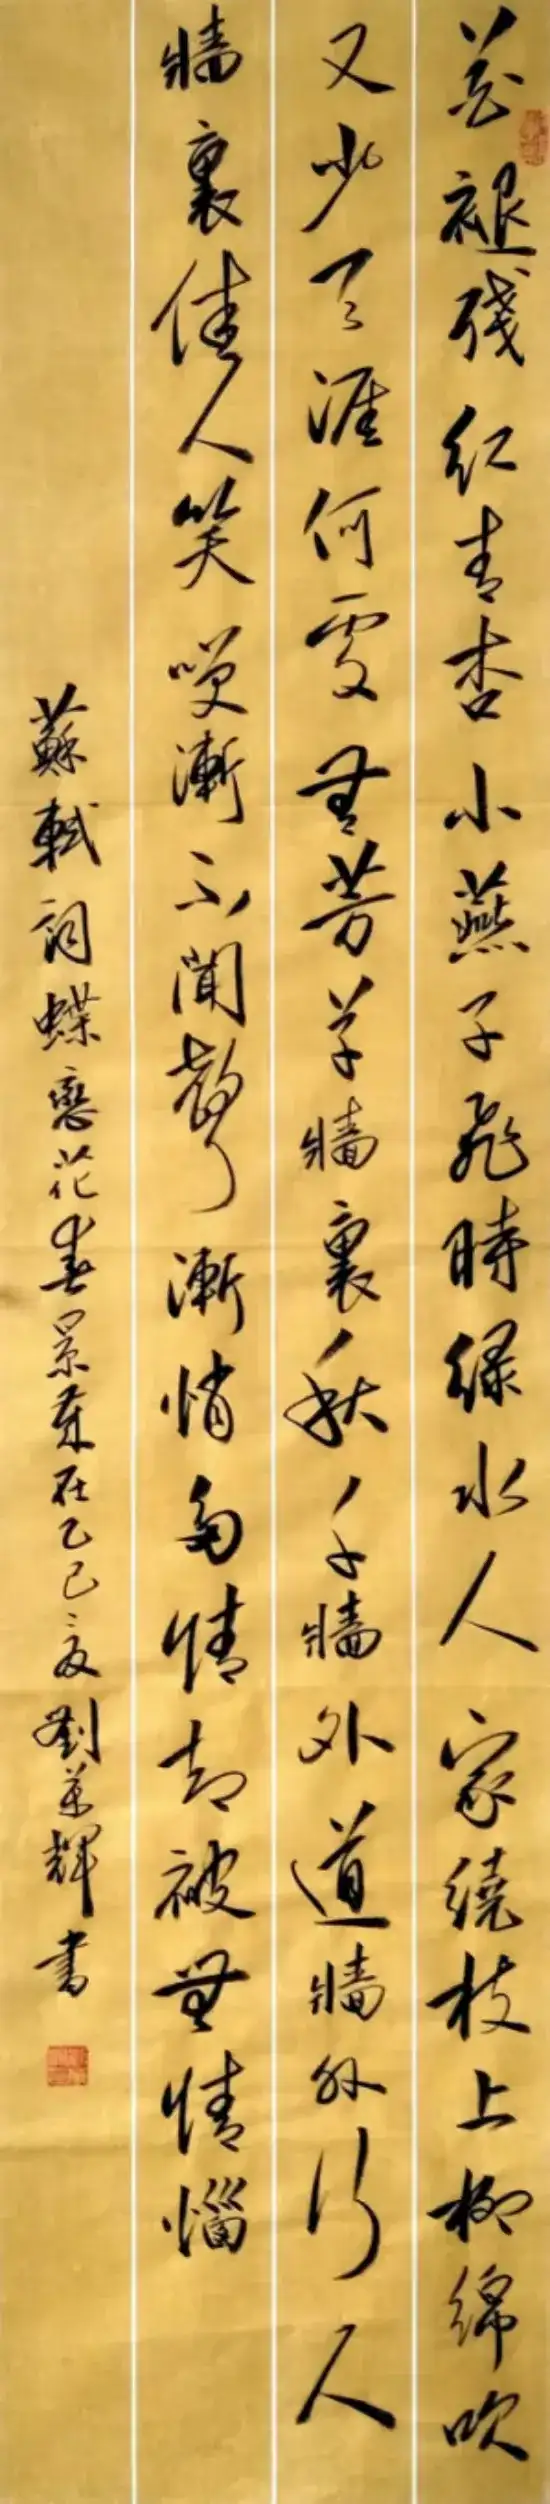 花褪殘紅青杏小燕子飛時綠水人家繞枝上柳綿吹
又少天涯何處無芳草牆裏秋千牆外道牆外行人
牆裏佳人笑咲漸不聞聲漸悄多情却被無情惱
蘇軾詞蝶戀花春景歲在乙巳夏劉輝書